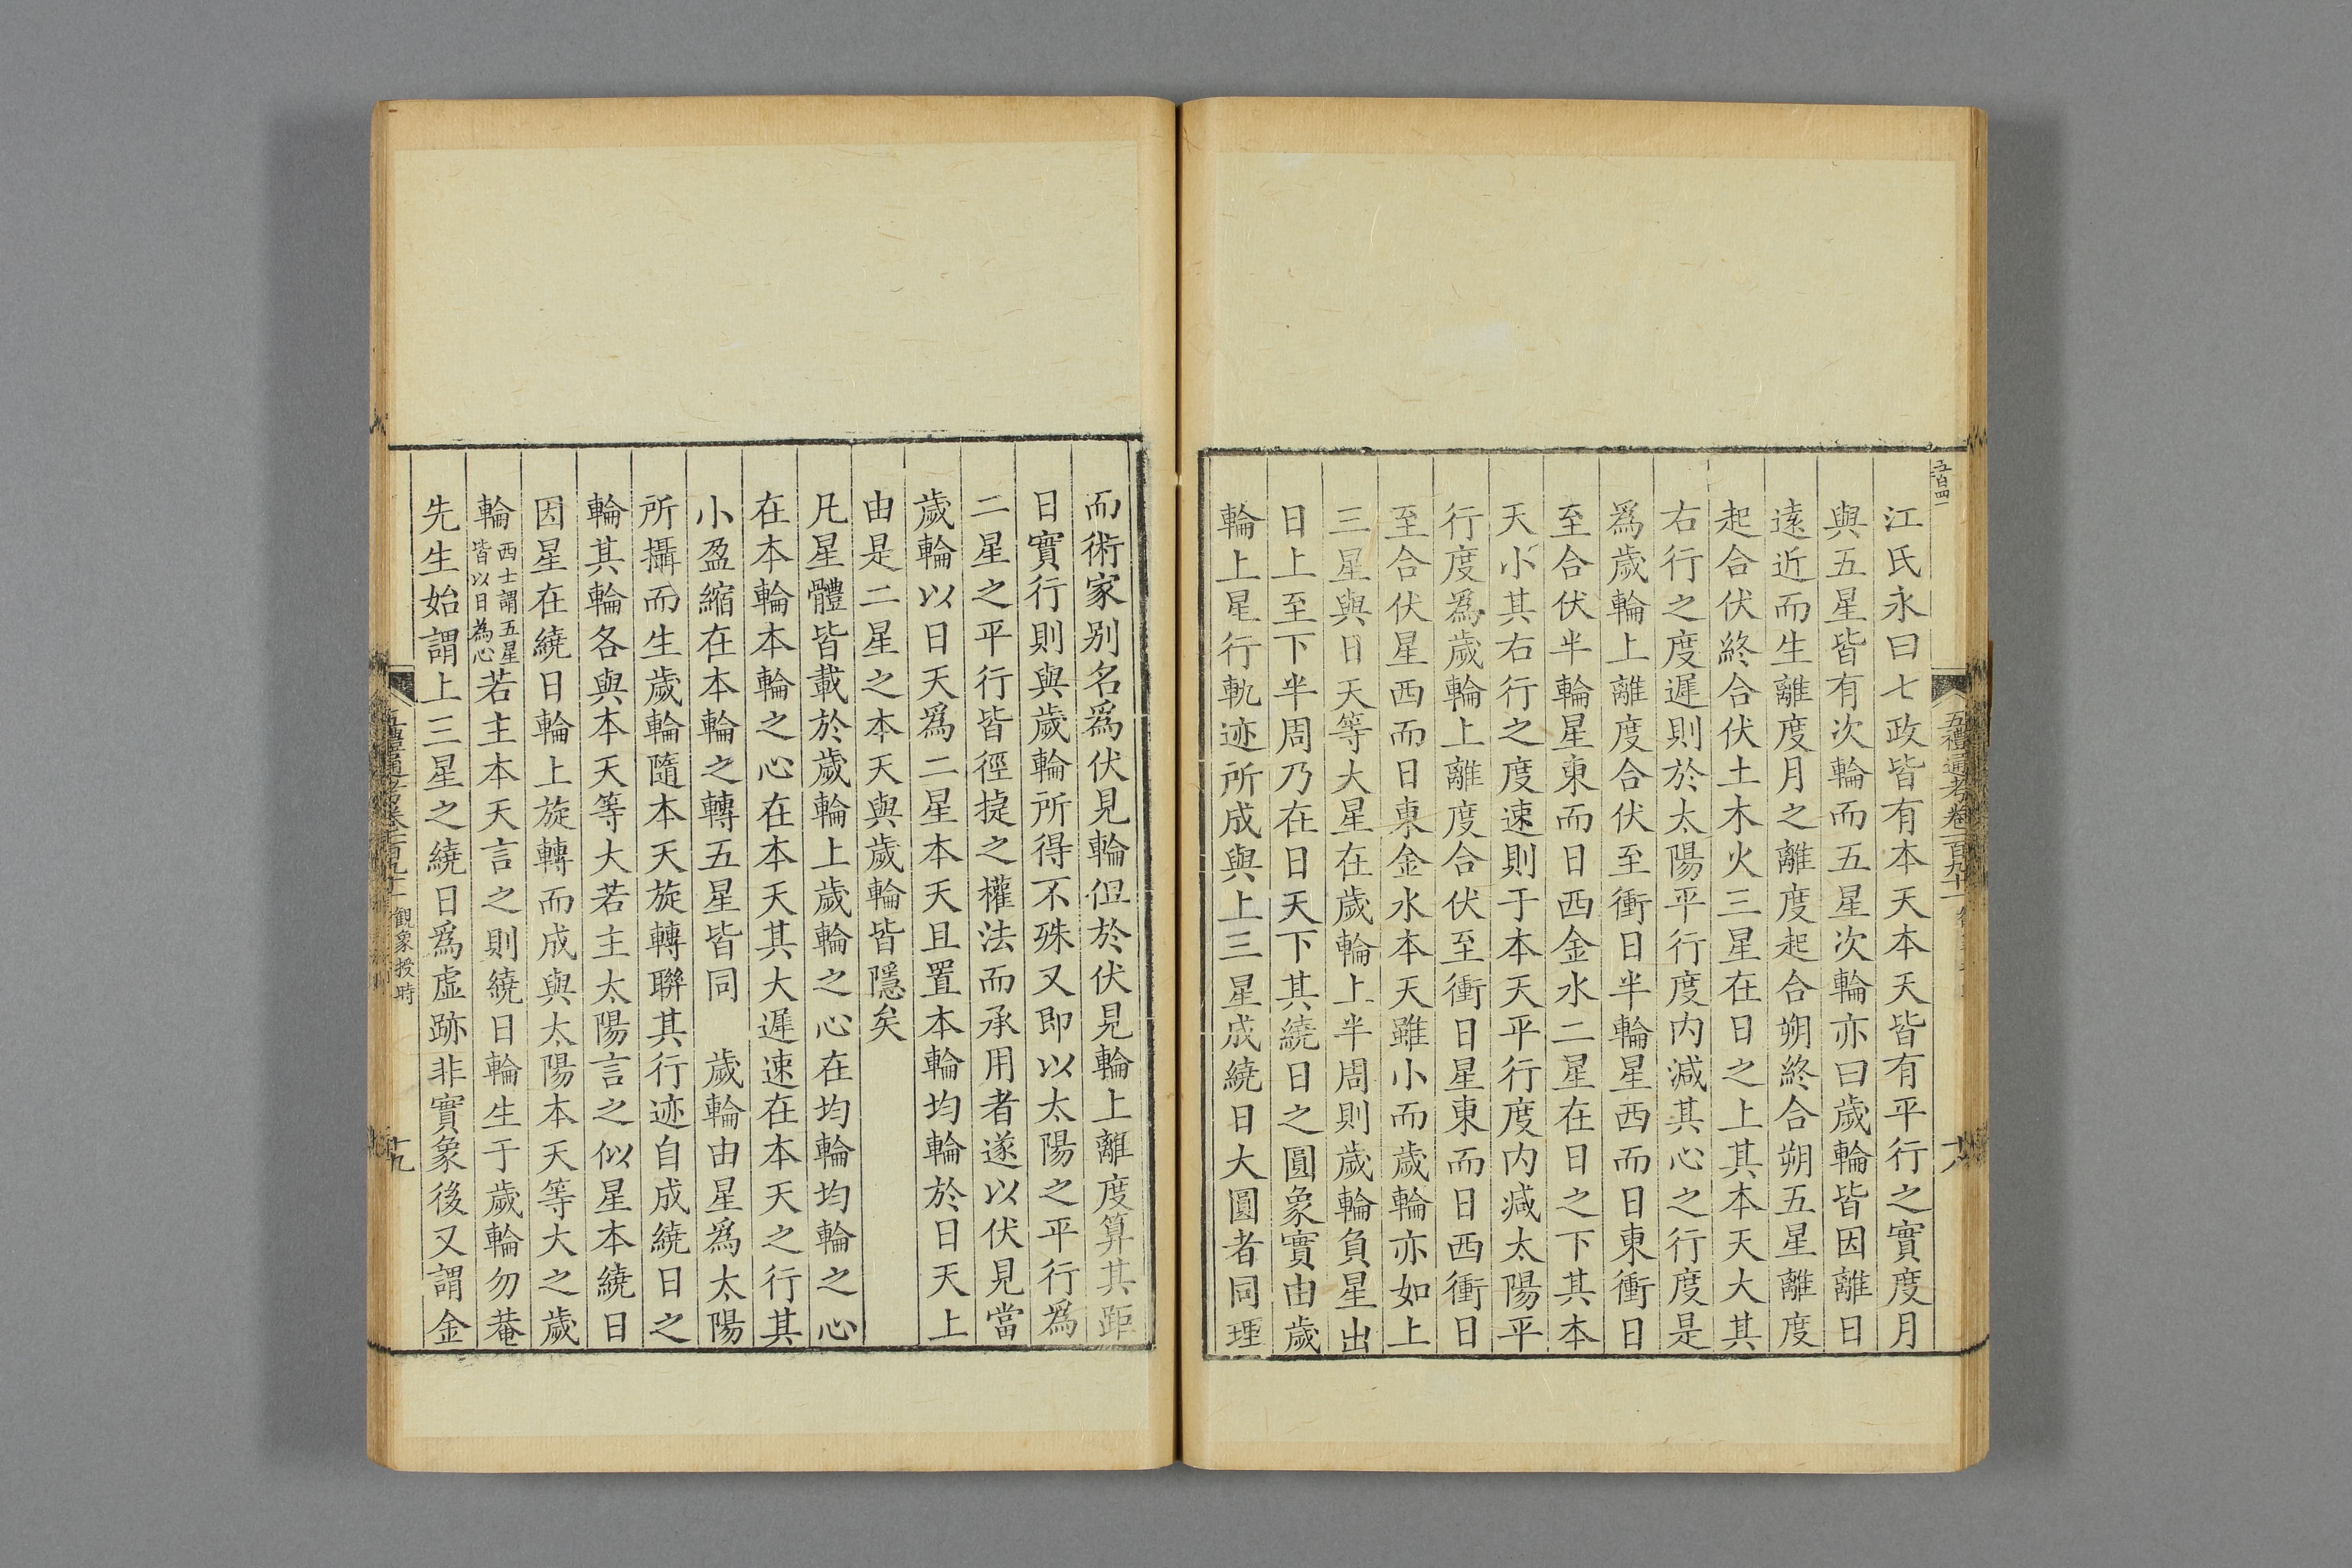 江氏永曰七政皆有本天本天皆有平行之實度月
與五星皆有次輪而五星次輪亦曰歲輪皆因離日
遠近而生離度月之離度起合朔終合朔五星離度
起合伏終合伏土木火三星在日之上其本天大其
右行之度遲則於太陽平行度内減其心之行度是
爲歲輪上離度合伏至衝日半輪星西而日東衝日
至合伏半輪星東而日西金水二星在日之下其本
天小其右行之度速則于本天平行度内減太陽平
行度爲歲輪上離度合伏至衝日星東而日西衝日
至合伏星西而日東金水本天雖小而歲輪亦如上
三星與日天等大星在歲輪上半周則歲輪負星出
日上至下半周乃在日天下其繞日之圓象實由歲
輪上星行軌迹所成與上三星成繞日大圓者同理
而術家别名爲伏見輪但於伏見輪上離度算其距
日實行則與歲輪所得不殊又即以太陽之平行爲
二星之平行皆徑捷之權法而承用者遂以伏見當
歲輪以日天爲二星本天且置本輪均輪於日天上
由是二星之本天與歲輪皆隱矣
凡星體皆載於歲輪上歲輪之心在均輪均輪之心
在本輪本輪之心在本天其大遲速在本天之行其
小盈縮在本輪之轉五星皆同　歲輪由星爲太陽
所攝而生歲輪隨本天旋轉聯其行迹自成繞日之
輪其輪各與本天等大若主太陽言之似星本繞日
因星在繞日輪上旋轉而成與太陽本天等大之歲
輪西士謂五星皆以日為心若主本天言之則繞日輪生于歲輪勿菴
先生始謂上三星之繞日爲虛跡非實象後又謂金
觀象授時
十九